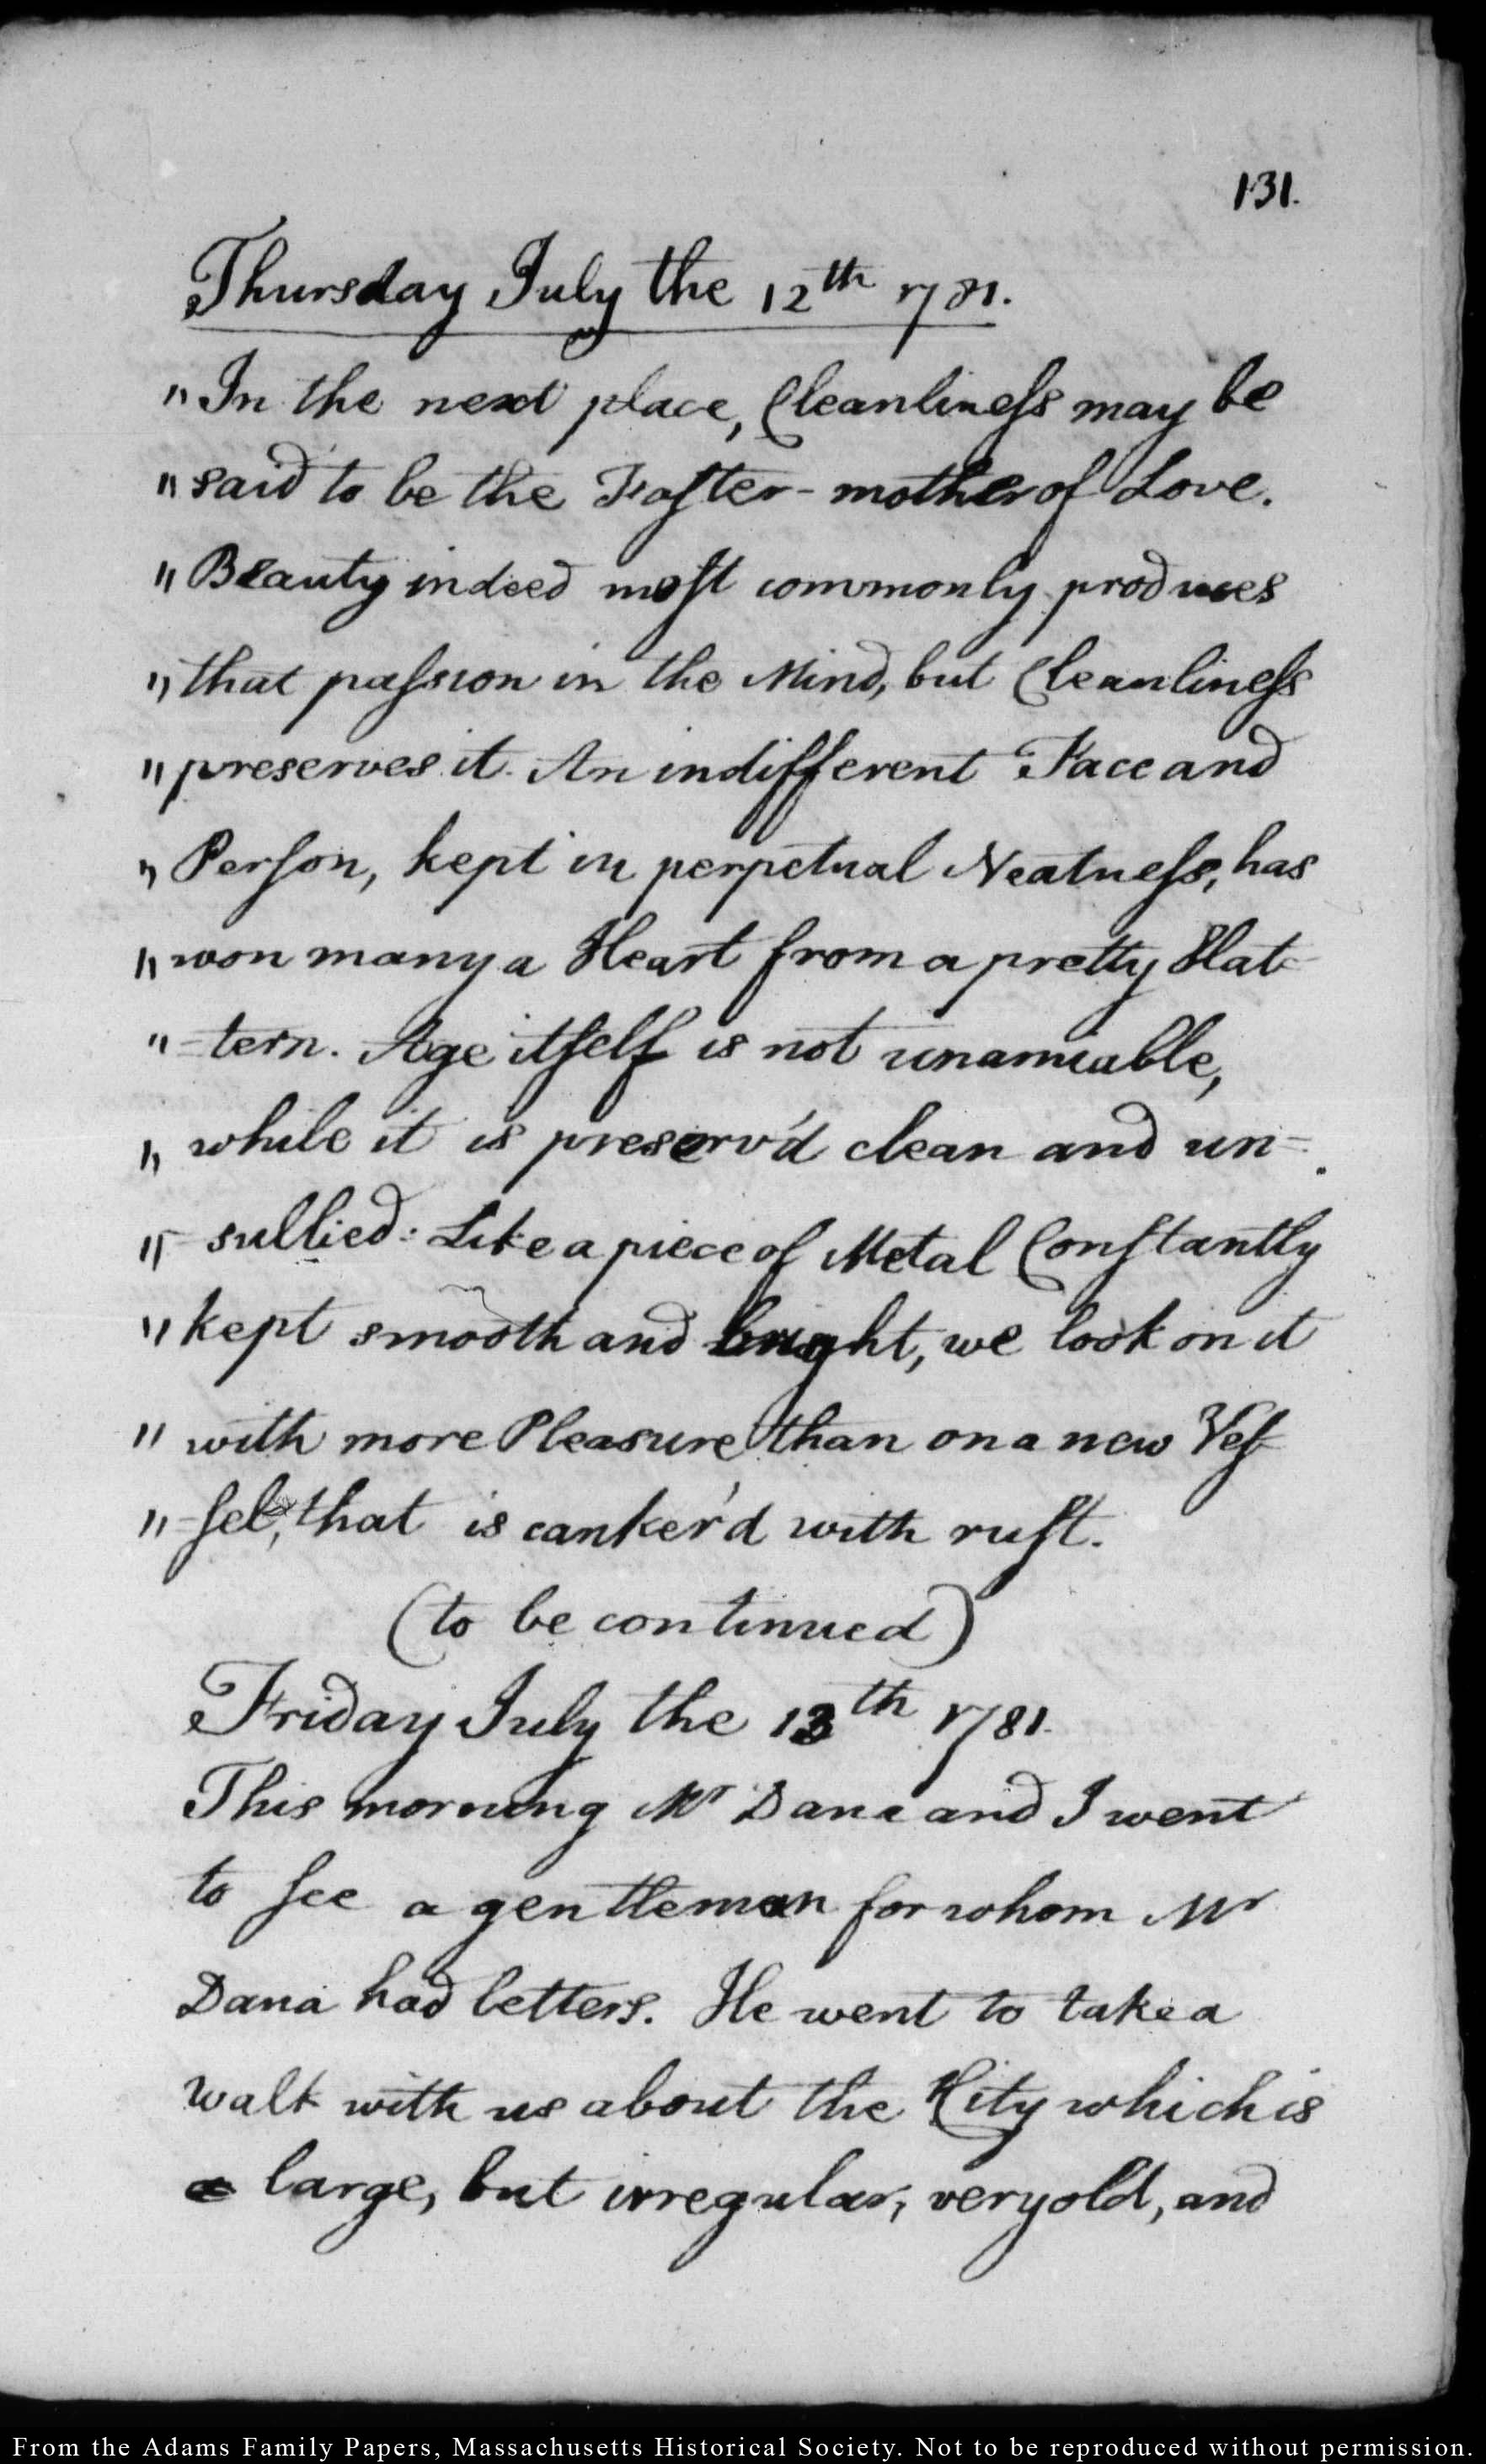 131.
Thursday July the 12th 1781.
"In the next place, Cleanliness may be
"said to be the Foster-mother of Love.
"Beauty indeed most commonly produces
"that passion in the Mind, but Cleanliness
"preserves it. An indifferent Face and
"Person, kept in perpetual Neatness, has
"won many a Heart from a pretty Slat=
"=tern. Age itself is not unamiable,
"while it is preserv'd clean and un=
"sullied: Like a piece of Metal Constantly
"kept smooth and bright, we look on it
"with more Pleasure than on a new Ves=
"=sel, that is canker'd with rust.
(to be continued)
Friday July the 13th 1781.
This morning Mr Dana and I went
to see a gentleman for whom Mr
Dana had letters. He went to take a
walk with us about the City which is
a large, but irregular, very old, and
From the Adams Family Papers, Massachusetts Historical Society. Not to be reproduced without permission.